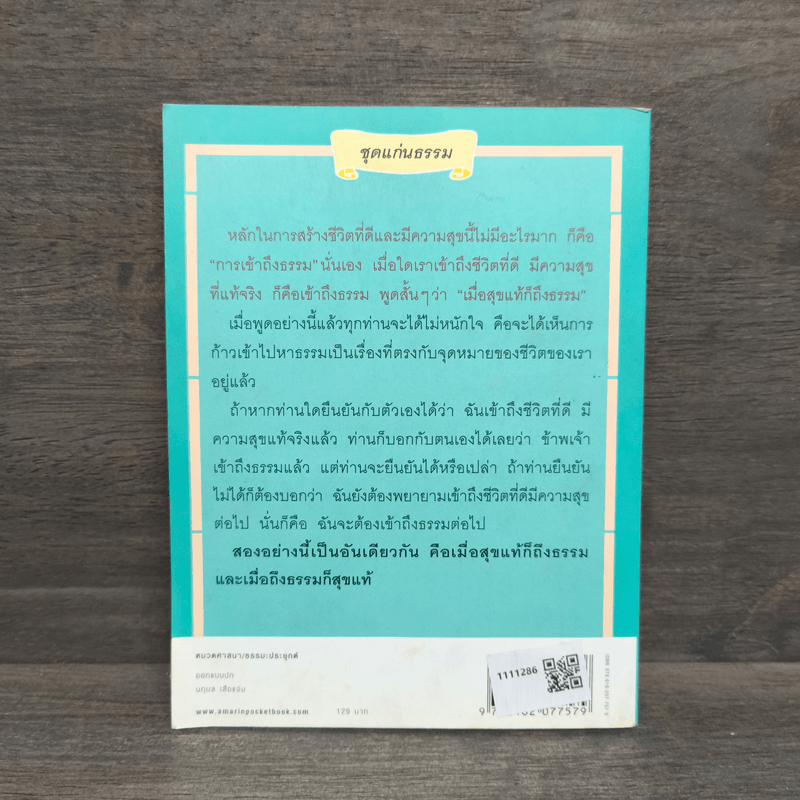 ชุดแก่นธรรม
หลักในการสร้างชีวิตที่ดีและมีความสุขนี้ไม่มีอะไรมาก ก็คือ
“การเข้าถึงธรรม” นั่นเอง เมื่อใดเราเข้าถึงชีวิตที่ดี มีความสุข
ที่แท้จริง ก็คือเข้าถึงธรรม พูดสั้นๆ ว่า “เมื่อสุขแท้ก็ถึงธรรม”
เมื่อพูดอย่างนี้แล้วทุกท่านจะได้ไม่หนักใจ คือจะได้เห็นการ
ก้าวเข้าไปหาธรรมเป็นเรื่องที่ตรงกับจุดหมายของชีวิตของเรา
อยู่แล้ว
ถ้าหากท่านใดยืนยันกับตัวเองได้ว่า ฉันเข้าถึงชีวิตที่ดี มี
ความสุขแท้จริงแล้ว ท่านก็บอกกับตนเองได้เลยว่า ข้าพเจ้า
เข้าถึงธรรมแล้ว แต่ท่านจะยืนยันได้หรือเปล่า ถ้าท่านยืนยัน
ไม่ได้ก็ต้องบอกว่า ฉันยังต้องพยายามเข้าถึงชีวิตที่ดีมีความสุข
ต่อไป นั่นก็คือ ฉันจะต้องเข้าถึงธรรมต่อไป
สองอย่างนี้เป็นอันเดียวกัน คือเมื่อสุขแท้ก็ถึงธรรม
และเมื่อถึงธรรมก็สุขแท้
หมวดศาสนา/ธรรมะประยุกต์
ออกแบบปก
นฤมล เสือแจ่ม
www.amarinpocketbook.com 129 บาท
1111286
077579